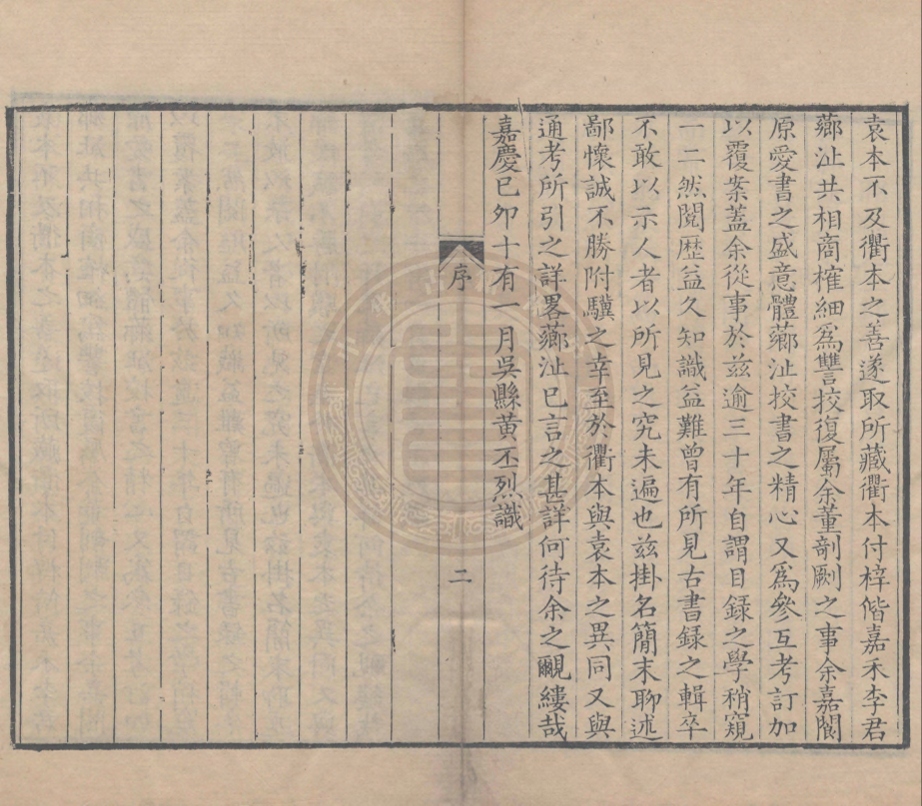 袁本不及衢本之善遂取所藏衢本付梓偕嘉禾李君
薌沚共相商榷細爲讐挍復屬余董剞劂之事余嘉閬
原愛書之盛意體薌沚挍書之精心又爲參互考訂加
以覆案蓋余從事於兹逾三十年自謂目録之學稍窺
一二然閱歷益久知識益難曾有所見古書録之輯卒
不敢以示人者以所見之究未遍也兹掛名簡末聊述
鄙懷誠不勝附驥之幸至於衢本與袁本之異同又與
通考所引之詳畧薌沚已言之甚詳何待余之覼縷哉
嘉慶已夘十有一月吳縣黃丕烈識
序
二